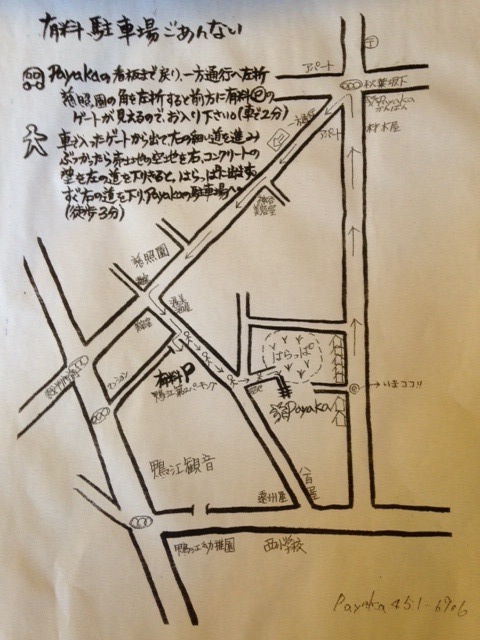 有料駐車場ごあんない
Payakaの看板まで戻り、一方通行へ左折
慈照園の角を左折すると前方に有料Pの
ゲートが見えるので、お入り下さい(車で2分)
車で入ったゲートから出て右の細い道を進み
ぶつかったら赤土地の空地を右、コンクリートの
壁を左の道を下りきると、はらっぱに出ます。
すぐ右の道を下り、Payakaの駐車場へ。
(徒歩3分)
〒
アパート
秋葉坂下
Payaka
かんばん
材木屋
一方通行
アパート
美容室
慈照園
マンション
有料P
鴨江第2パーキング
はらっぱ
Payaka
いまココ!!
鴨江観音
遠州屋
八百屋
鴨江幼稚園
西小学校
Payaka 451-6906